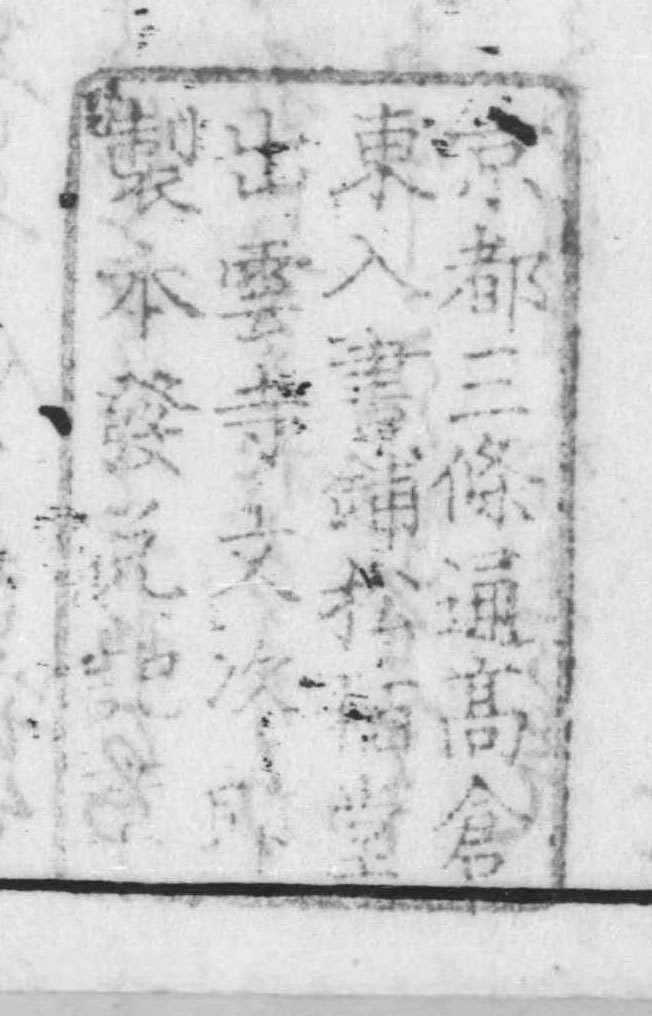 京都三條通髙倉
東入書鋪松栢堂
出雲寺文次郎
製本發兌記章